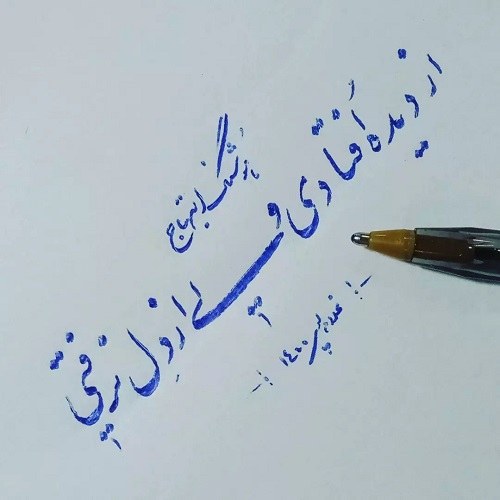 از دیده اُفتادی ولی از دل نرفتی
هوشنگ ابتهاج
۱۴۰۰